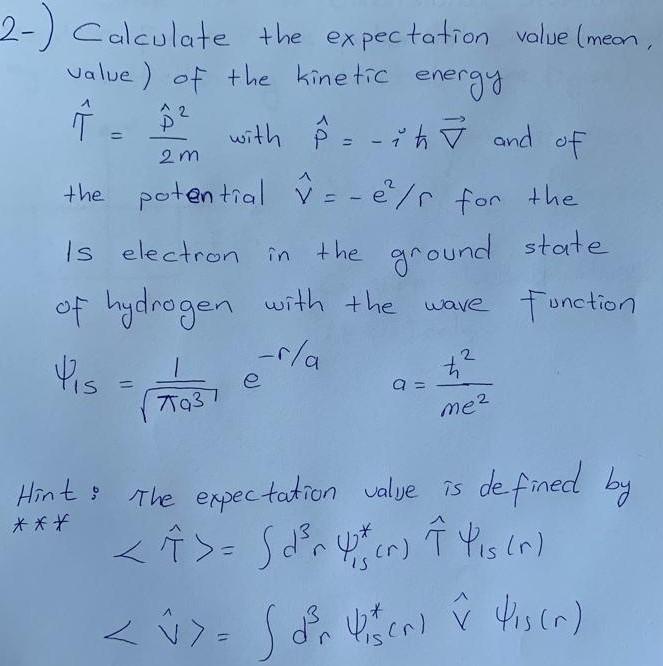 2-) Calculate the expectation value (mean,
value) of the kinetic energy
T̂ = p̂²/2m with p̂ = -iħ ∇⃗ and of
the potential V̂ = -e²/r for the
1s electron in the ground state
of hydrogen with the wave function
Ψ1s = 1/√(πa³) e^(-r/a) a = ħ²/me²
Hint: The expectation value is defined by
***
<T̂> = ∫d³r Ψ*1s(r) T̂ Ψ1s(r)
<V̂> = ∫d³r Ψ*1s(r) V̂ Ψ1s(r)